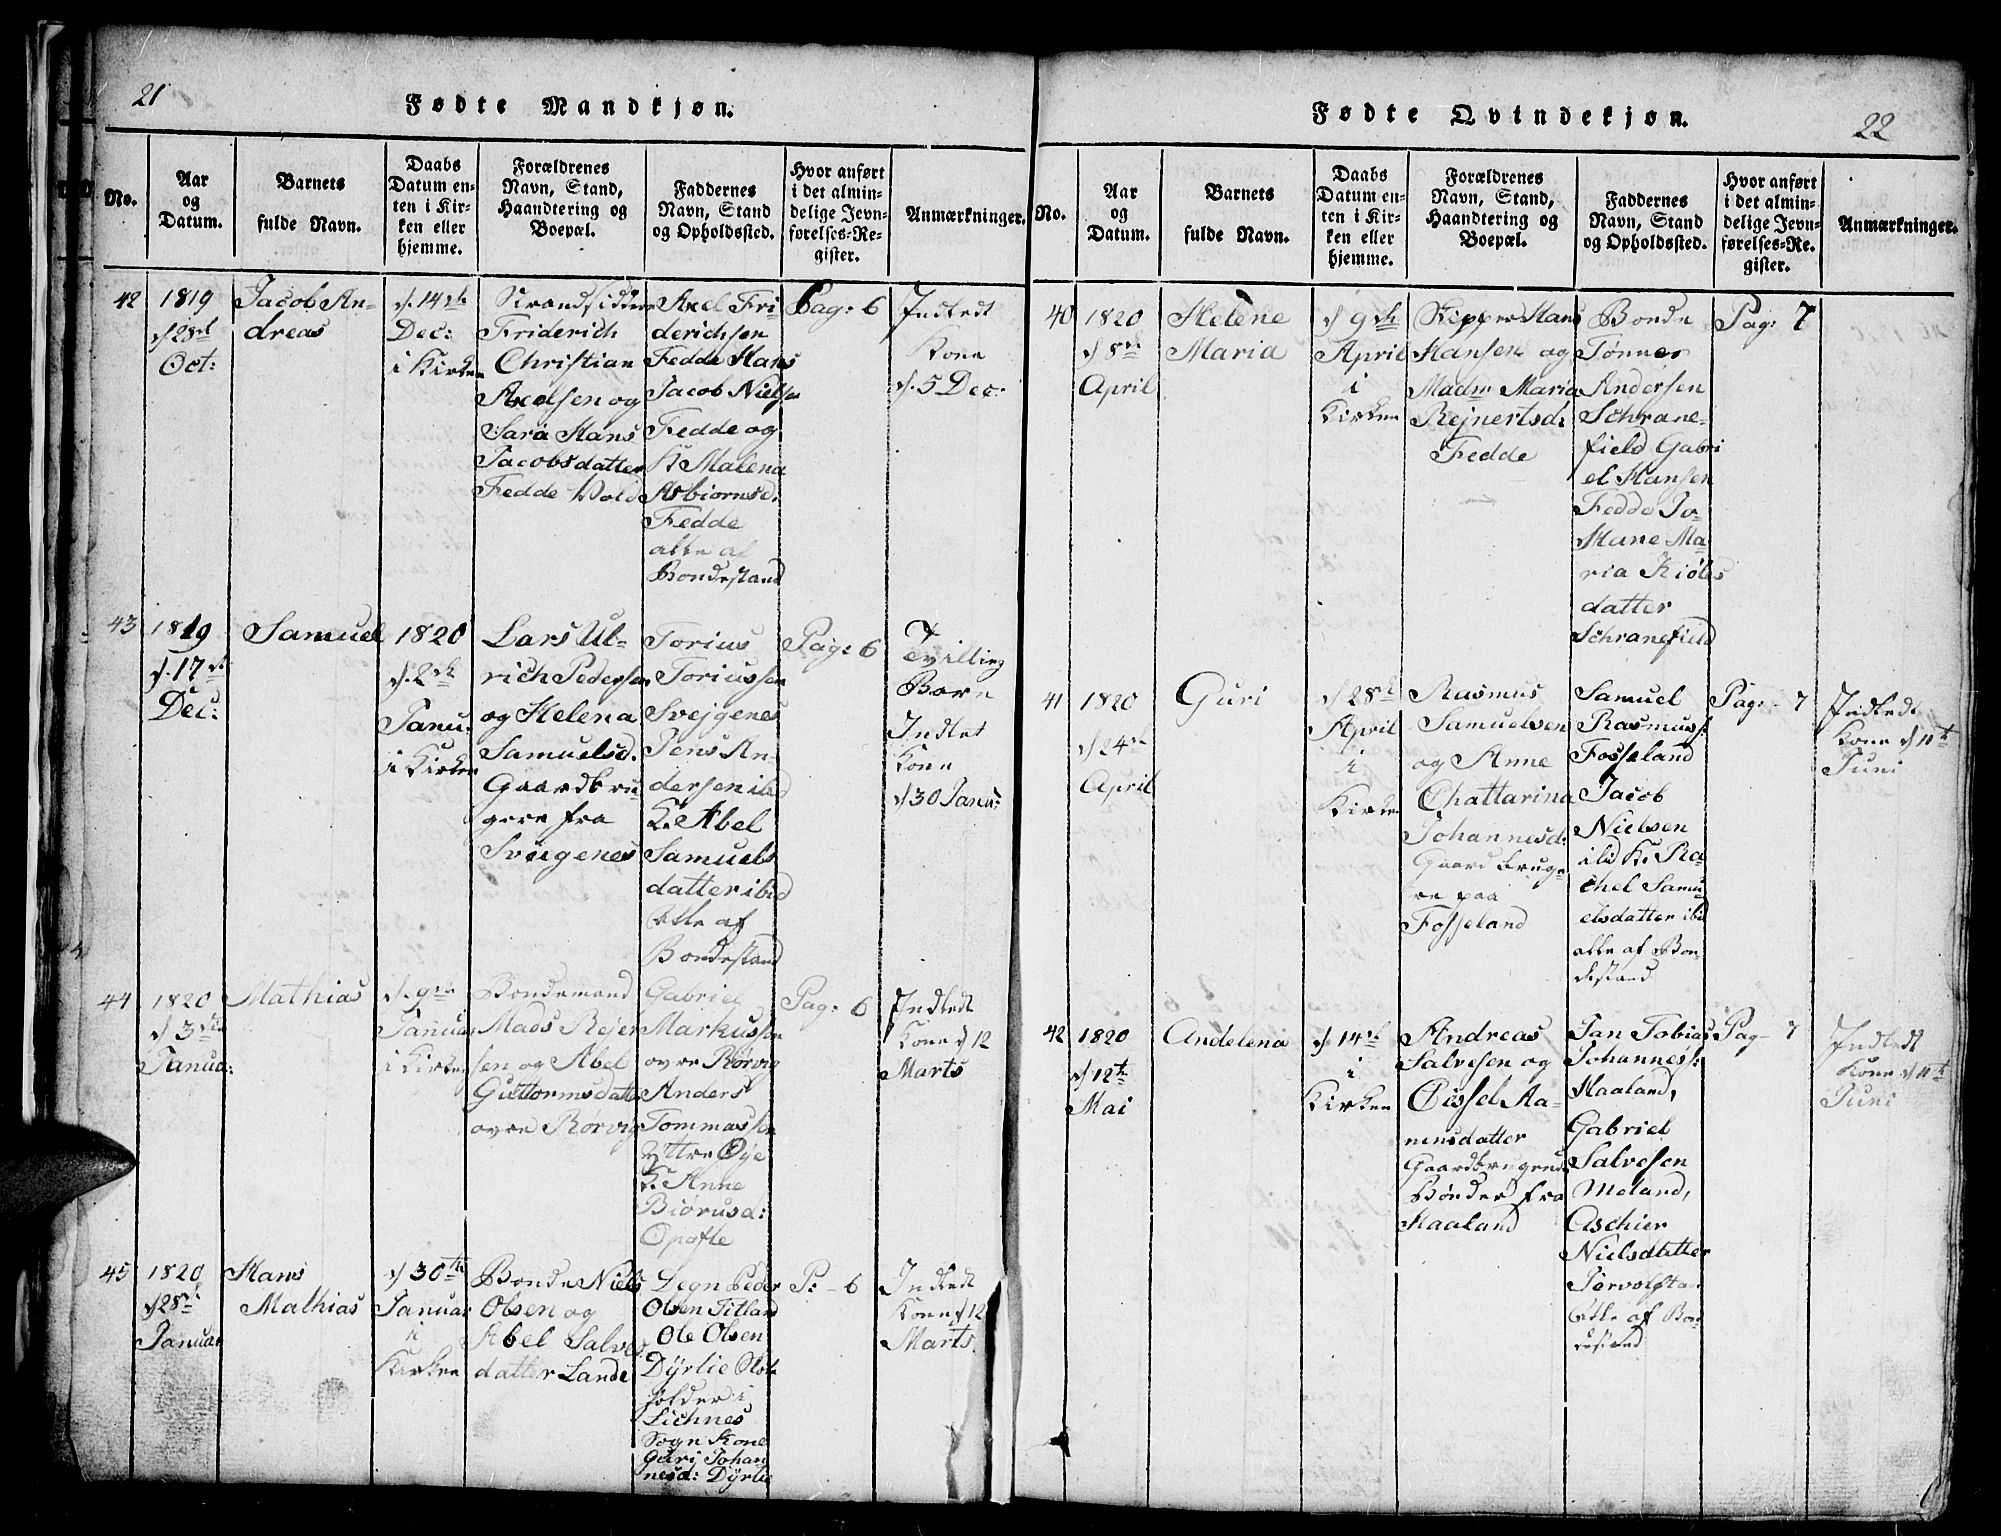 21
Fødte Mandkjøn.
No.
Aar
og
Datum.
Barnets
fulde Navn.
Daabs
Datum en-
ten i Kir-
ken eller
hjemme.
Forældrenes
Navn, Stand,
Haandtering og
Boepæl.
Faddernes
Navn, Stand
og Opholdssted.
Hvor anført
i det almin-
delige Jevn-
førelses-Re-
gister.
Anmærkninger.
42
1819
d 28de
Oct:
Jacob An-
dreas
d. 14de
Dec:
i Kirken
Strandsidder
Friderich
Christian
Axelsen og
Sara Hans
Jacobsdatter
Fedde Vold
Axel Fri
derichsen
Fedde Hans
Jacob Nielsen
Fedde og
K Malena
Asbiornsd:
Fedde
alle af
Bondestand
Pag: 6
Indledt
Kone
d. 5 Dec:
43
1819
d. 17de
Dec:
Samuel
1820
d. 2de
Janu:
i Kirken
Lars Ul-
rich Pedersen
og Helena
Samuelsd.
Gaardbru
gere fra
Sveigenes
Torius
Toriussen
Svejgenes
Jens An-
dersen ibid
K. Abel
Samuels
datter ibid
Alle af
Bondestand
Pag: 6
Tvilling
Børn
Indlet
Kone
d 30 Janu:
44
1820
d 3de
Janua:
Mathias
d. 9de
Januar
i Kirken
Bondemand
Mads Rejer
sen og Abel
Guttormsdatter
ovre Rørvig
Gabriel
Markussen
ovre Rørvig
Anders
Tommassen
yttre Øye
K. Anne
Biørnsd:
Opofte
Pag: 6
Indledt
Kone d 12
Marts
45
1820
d 28de
Januar
Hans
Mathias
d 30te
Januar
i
Kirken
Bonde Niels
Olsen og
Abel Salves
datter Lande
Degn Peder
Olsen Titland
Ole Olsen
Dyrlie
holder i
Lichnes
Sogn Kone
Guri Johan
nesd: Dyrlie
P: - 6
Indledt
Kone d 12
Marts.
22
Fødte Qvindekjøn.
No.
Aar
og
Datum.
Barnets
fulde Navn.
Daabs
Datum en-
ten i Kir-
ken eller
hjemme.
Forældrenes
Navn, Stand,
Haandtering og
Boepæl.
Faddernes
Navn, Stand
og Opholdssted.
Hvor anført
i det almin-
delige Jevn-
førelses-Re-
gister.
Anmærkninger.
40
1820
d 8de
April
Helene
Maria
d 9de
April
i
Kirken
Skipper Hans
Hansen og
Madm Maria
Rejnertsd:
Fedde
Bonde
Tønnes
Andersen
Schrane-
field Gabri
el Hansen
Fedde Jo-
Hane Ma
ria Kiøls
datter
Schranefield
Pag: 7
41
1820
d 24de
April
Guri
d 28de
April
i
Kirken
Rasmus
Samuelsen
og Anne
Chattarina
Johannesd:
Gaard bruge
re paa
Fosseland
Samuel
Rasmuss:
Fosseland
Jacob
Nielsen
ibd K: Ra-
chel Samu
elsdatter ibd
alle af Bon
destand
Pag: - 7
Indledt
Kone d 11te
Juni
42
1820
d 12te
Mai
Andelena
d 14de
i
Kirken
Andreas
Salvesen og
Cissel Aa-
nensdatter
Gaardbrugende
Bønder fra
Haaland
Jan Tobias
Johanness:
Haaland,
Gabriel
Salvesen
Meland,
Aschier
Nielsdatter
Alle af Bon
destand
Pag - 7
Indledt
Kone d 11te
Juni